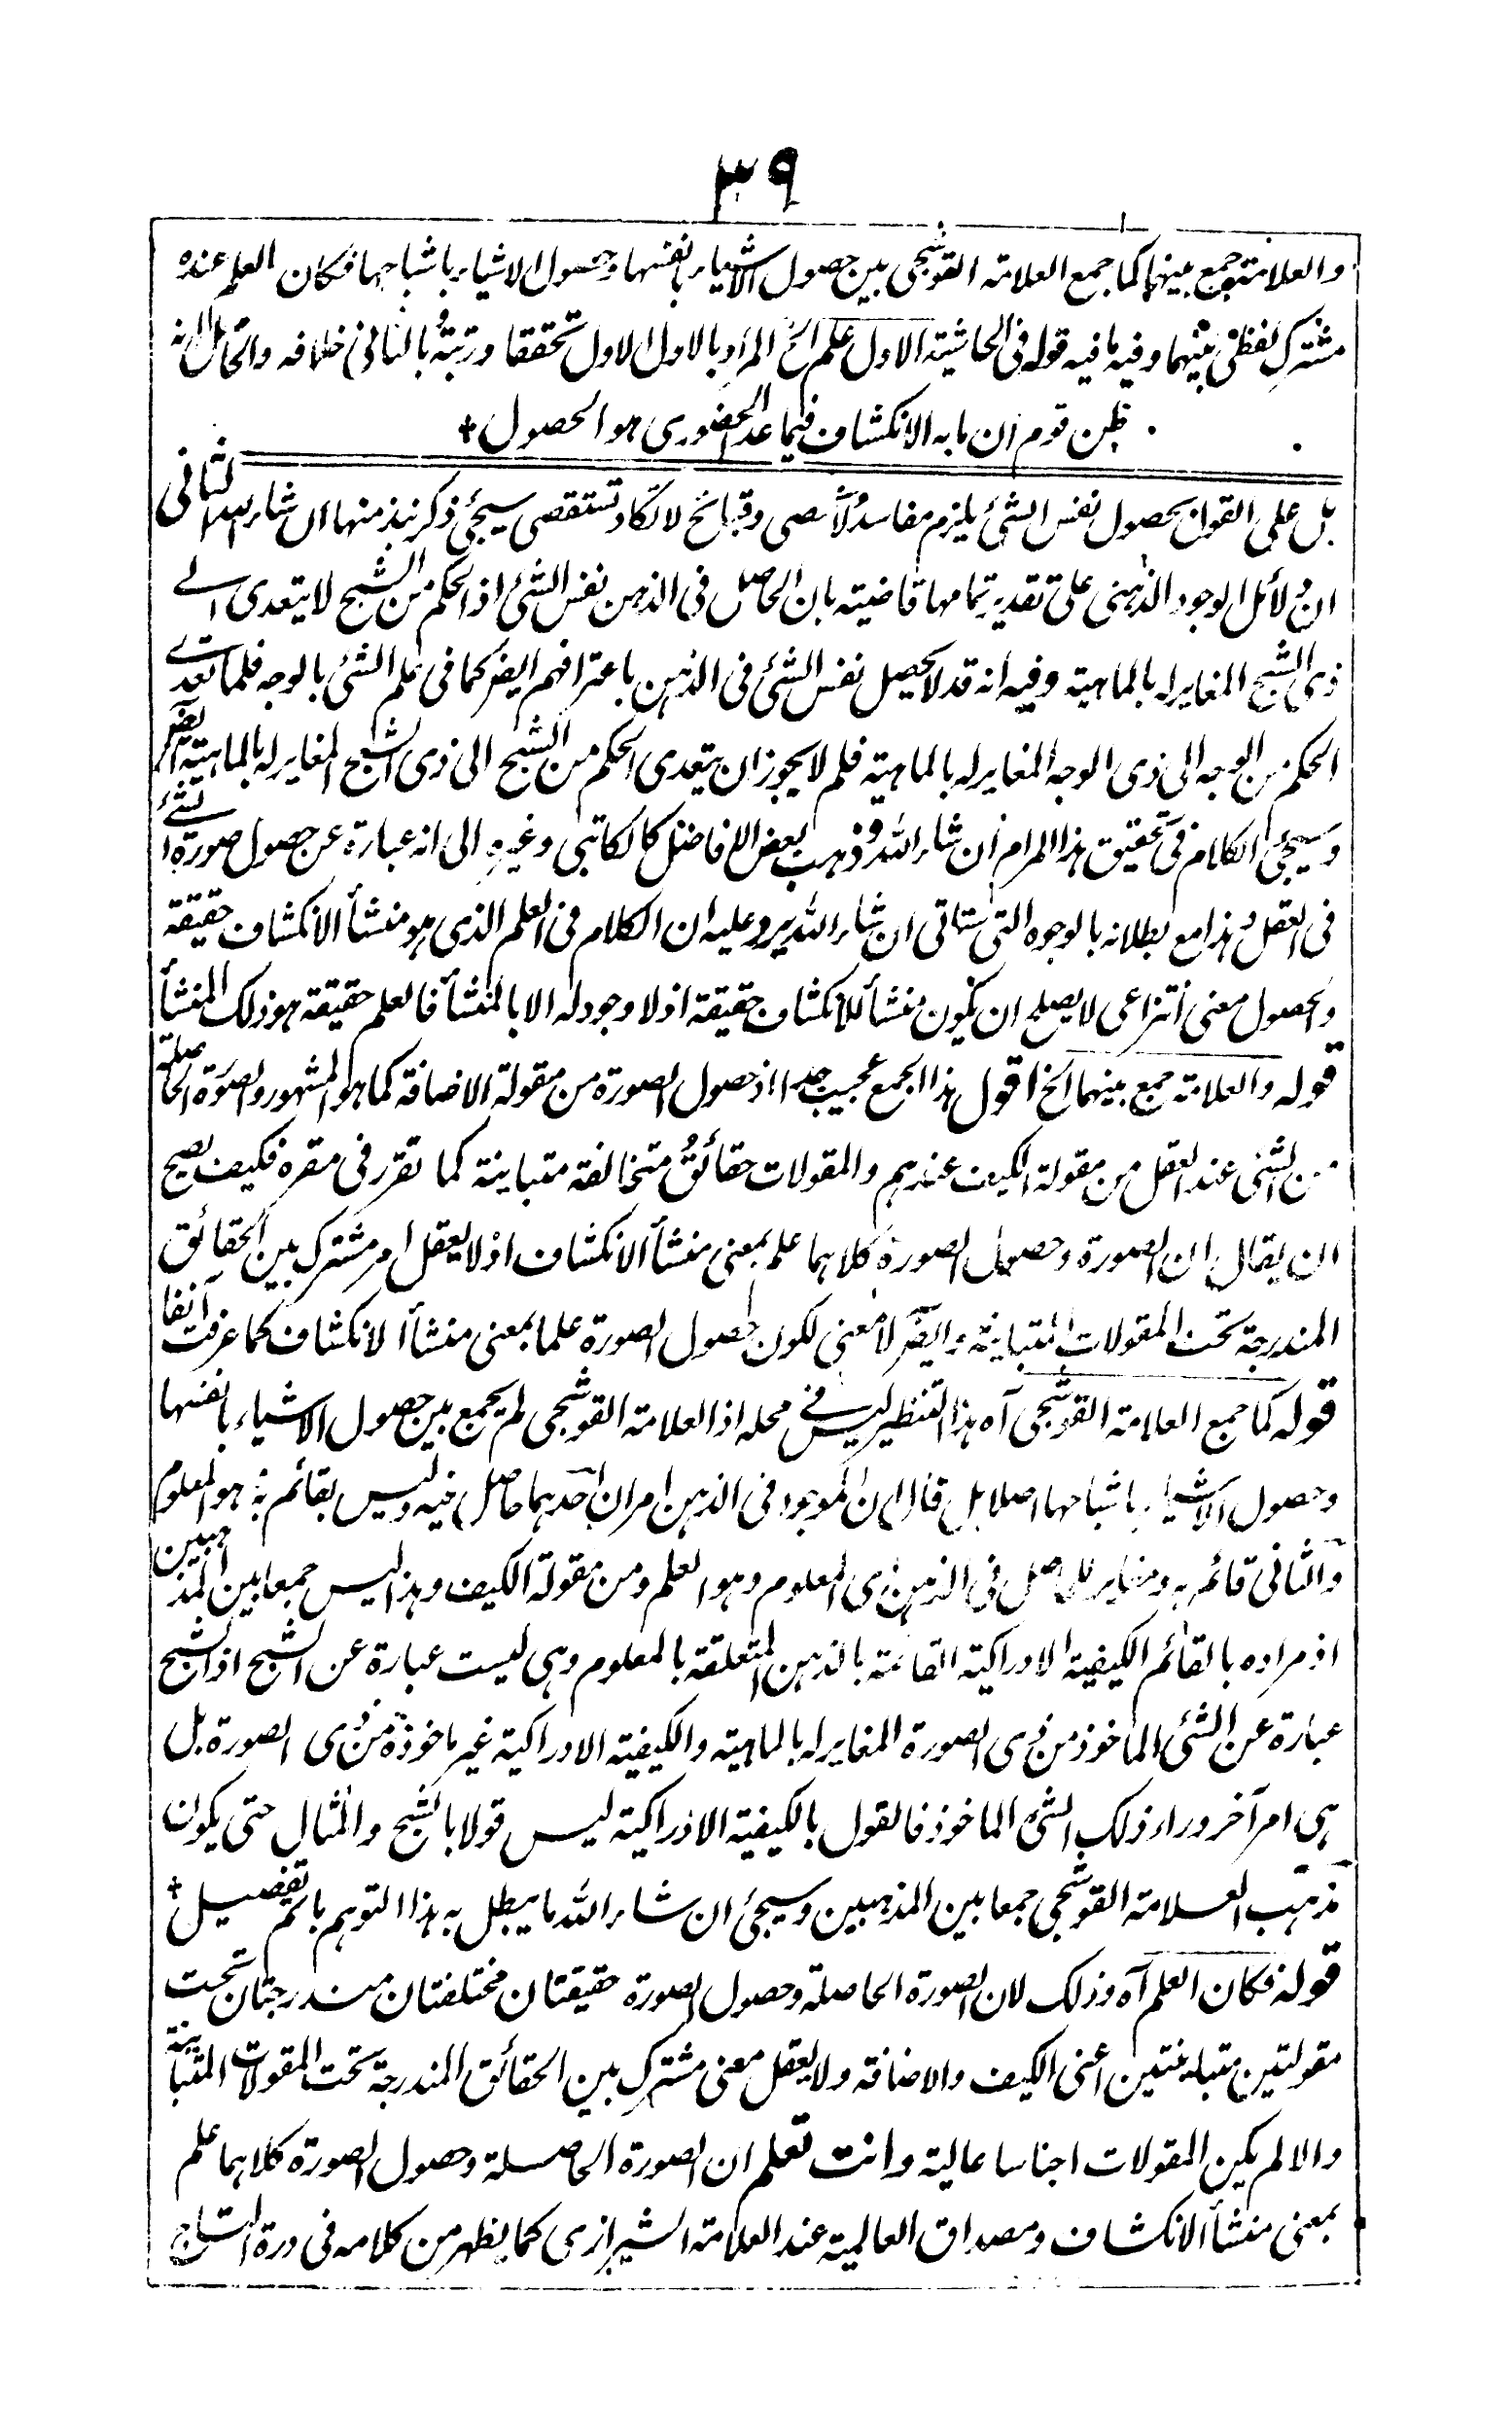 ٣٩
والعلامة جمع بينهما كما جمع العلامة القوشجى بين حصول الاشياء بانفسها وحصول الاشياء باشباحها فكان العلم عنده
مشترك لفظى بينهما وفيه ما فيه قوله فى الحاشية الاول علم الخ المراد بالاول الاول تحققا ورتبة وبالثانى خلافه والحاصل انه
ظن قوم ان ما به الانكشاف فيما عدا الحضورى هو الحصول +
بل على القول بحصول نفس الشئ يلزم مفاسد لا تحصى وقبائح لا تكاد تستقصى سيجئ ذكر نبذ منها ان شاء الله الثانى
ان دلائل الوجود الذهنى على تقدير تمامها قاضية بان الحاصل فى الذهن نفس الشئ اذ الحكم من الشبح لا يتعدى الى
ذى الشبح المغاير له بالماهية وفيه انه قد لا يحصل نفس الشئ فى الذهن باعترافهم ايضر كما فى علم الشئ بالوجه فلما تعدى
الحكم من الوجه الى ذى الوجه المغاير له بالماهية فلم لا يجوز ان يتعدى الحكم من الشبح الى ذى الشبح المغاير له بالماهية ايضر
وسيجئ الكلام فى تحقيق هذا المرام ان شاء الله وذهب بعض الافاضل كالكاتبى وغيره الى انه عبارة عن حصول صورة الشئ
فى العقل وهذا مع بطلانه بالوجوه التى ستاتى ان شاء الله يرد عليه ان الكلام فى العلم الذى هو منشأ الانكشاف حقيقة
والحصول معنى انتزاعى لا يصلح ان يكون منشأ للانكشاف حقيقة اذ لا وجود له الا بالمنشأ فالعلم حقيقة هو ذلك المنشأ
قوله والعلامة جمع بينهما الخ اقول هذا الجمع عجيب جدا اذ حصول الصورة من مقولة الاضافة كما هو المشهور والصورة الحاصلة
من الشئ عند العقل من مقولة الكيف عندهم والمقولات حقائق متخالفة متباينة كما تقرر فى مقره فكيف يصح
ان يقال ان الصورة وحصول الصورة كلاهما علم بمعنى منشأ الانكشاف اذ لا يعقل امر مشترك بين الحقائق
المندرجة تحت المقولات المتباينة وايضر لا معنى لكون حصول الصورة علما بمعنى منشأ الانكشاف كما عرفت آنفا
قوله كما جمع العلامة القوشجى آه هذا التنظير ليس فى محله اذ العلامة القوشجى لم يجمع بين حصول الاشياء بانفسها
وحصول الاشياء باشباحها اصلا بل قال ان الموجود فى الذهن امران احدهما حاصل فيه وليس بقائم به هو المعلوم
والثانى قائم به ومغاير للحاصل فى الذهن اى المعلوم وهو العلم ومن مقولة الكيف وهذا ليس جمعا بين المذهبين
اذ مراده بالقائم الكيفية الادراكية القائمة بالذهن المتعلقة بالمعلوم وهى ليست عبارة عن الشبح اذ الشبح
عبارة عن الشئ الماخوذ من ذى الصورة المغاير له بالماهية والكيفية الادراكية غير ماخوذة من ذى الصورة بل
هى امر آخر وراء ذلك الشئ الماخوذ فالقول بالكيفية الادراكية ليس قولا بالشبح والمثال حتى يكون
مذهب العلامة القوشجى جمعا بين المذهبين وسيجئ ان شاء الله ما يبطل به هذا التوهم باتم تفصيل +
قوله فكان العلم آه وذلك لان الصورة الحاصلة وحصول الصورة حقيقتان مختلفتان مندرجتان تحت
مقولتين متباينتين اعنى الكيف والاضافة ولا يعقل معنى مشترك بين الحقائق المندرجة تحت المقولات المتباينة
والا لم يكن المقولات اجناسا عالية وانت تعلم ان الصورة الحاصلة وحصول الصورة كلاهما علم
بمعنى منشأ الانكشاف ومصداق العالمية عند العلامة الشيرازى كما يظهر من كلامه فى درة التاج